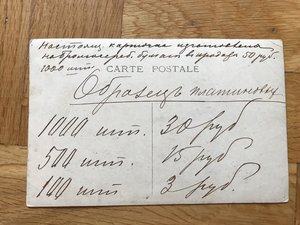 Настоящ. карточка изготовлена
на бромосереб. бумаге в продаже 50 руб.
1000 шт.
CARTE POSTALE
Образецъ платиновых
1000 шт. 30 руб
500 шт. 15 руб
100 шт 3 руб